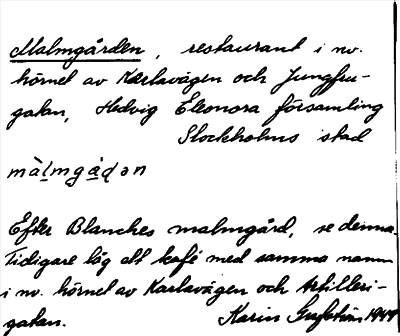 Malmgården, restaurant i nv.
hörnet av Karlavägen och Jungfru-
gatan, Hedvig Eleonora församling
Stockholms stad
màl̥mgå̀ɖən
Efter Blanches malmgård, se denna.
Tidigare låg ett kafé med samma namn
i nv. hörnet av Karlavägen och Artilleri-
gatan. Karin 1944